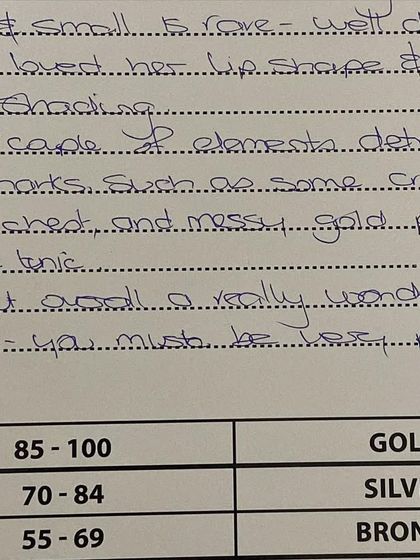 & small is rare - well d
loved her lip shape &
Shading.
caple of elements det
marks. Such as some cr
chest, and messy gold
tunic.
overall a really wond
- you must be very
85 - 100 GOL
70 - 84 SILV
55 - 69 BRON